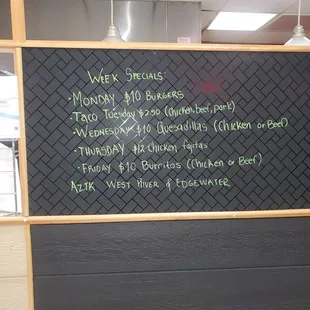 Week Specials:
• Monday $10 Burgers
• Taco Tuesday $2.50 (Chicken, beef, pork)
• Wednesday $10 Quesadillas (Chicken or Beef)
• Thursday $12 Chicken fajitas
• Friday $10 Burritos (Chicken or Beef)
Aztk West River & Edgewater